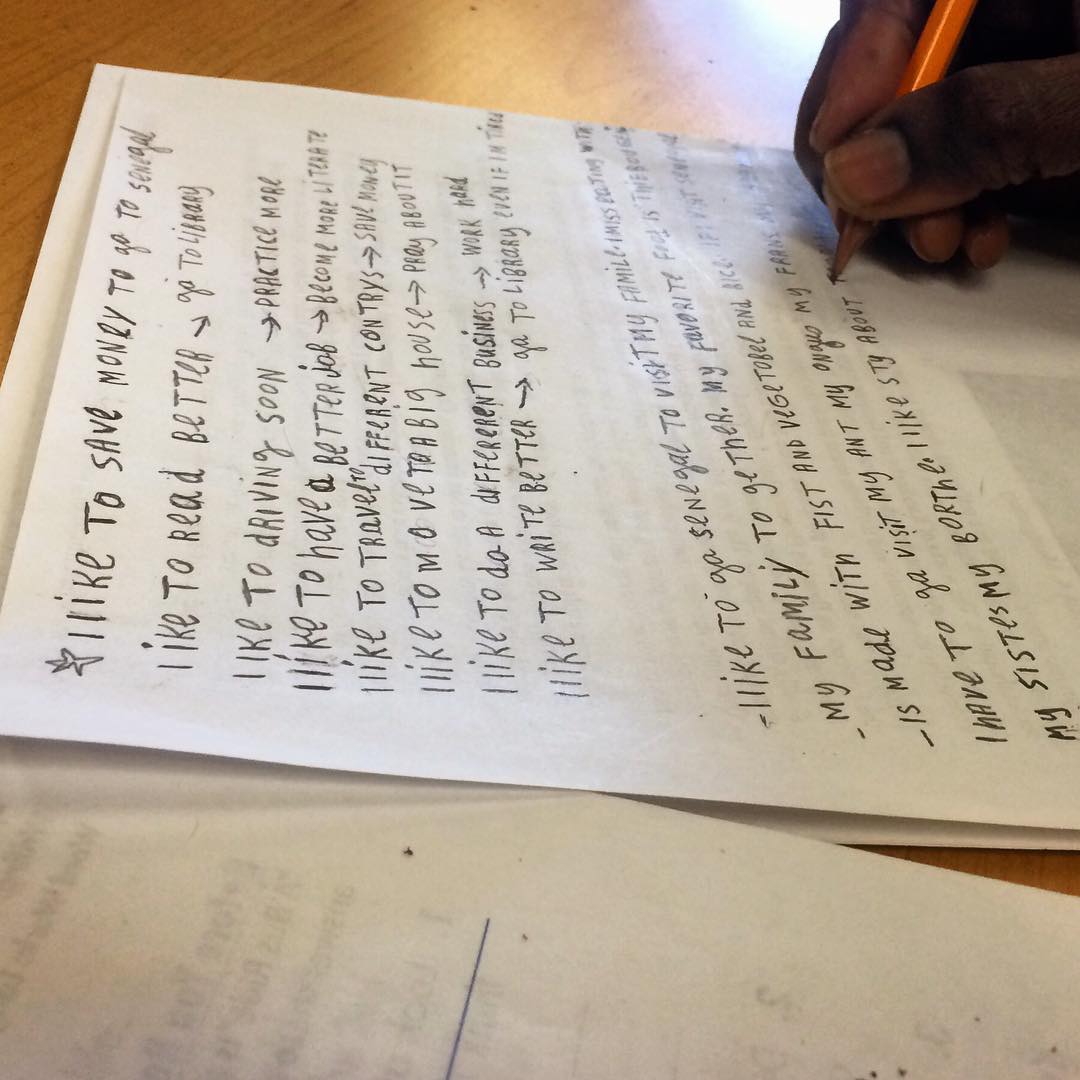 ☆ I liKE TO SAVE MONEY TO go TO SENEgal
I iKE TO REAd BETTER → go TO LIBRARY
I IKE TO dRiVING SOON → PRACTICE MORE
I liKE TO hAVE a BETTER JOB → BECOME MORE LITERATE
I liKE TO TRAVEl TO diFFERENT CONTRYS → SAVE MONEY
I liKE TO MOVE TO A BIG hOUSE → PRAY ABOUT IT
I liKE TO do A diFFERENT BUSINESS → WORK HARd
I liKE TO WRITE BETTER → go TO LIBRARY EVEN IF IM TIRED
- I liKE TO go SENEgal TO VISIT MY FAMILE. I MISS EATING WITH
- MY FAMILY TO gETHER. MY FAVORITE FOOD IS
- IS MAdE WITH FIST ANd VEgETOBEl ANd RICE. IF I VISIT SENEgal
I HAVE TO go VISIT MY ANT MY ONglO MY FRANS
MY SISTES MY BORTHE. I liKE STY ABOUT